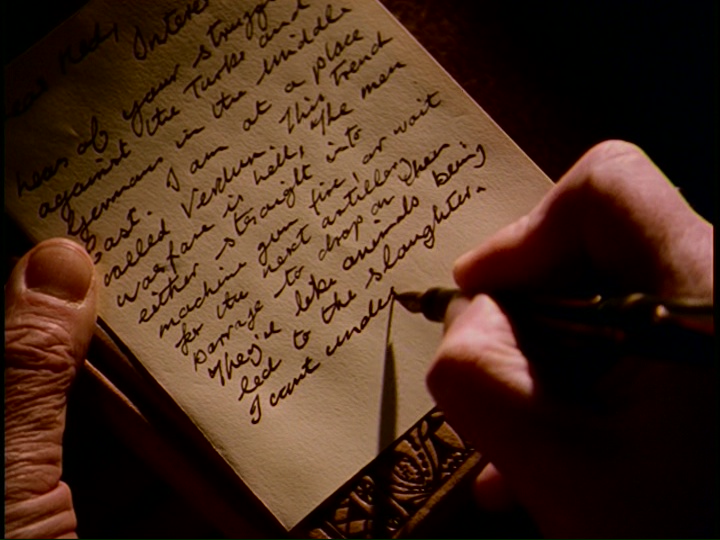 Dear Ned, Interes
hear of your strugg
against the Turks and
Germans in the Middle
East. I am at a place
called Verdun. This trench
warfare is hell, The men
either straight into
machine gun fire, or wait
for the next artillery
barrage to drop on them
They're like animals being
led to the slaughter.
I cant under